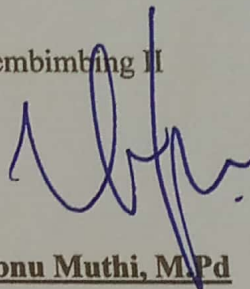 embimbing II
onu Muthi, M.Pd